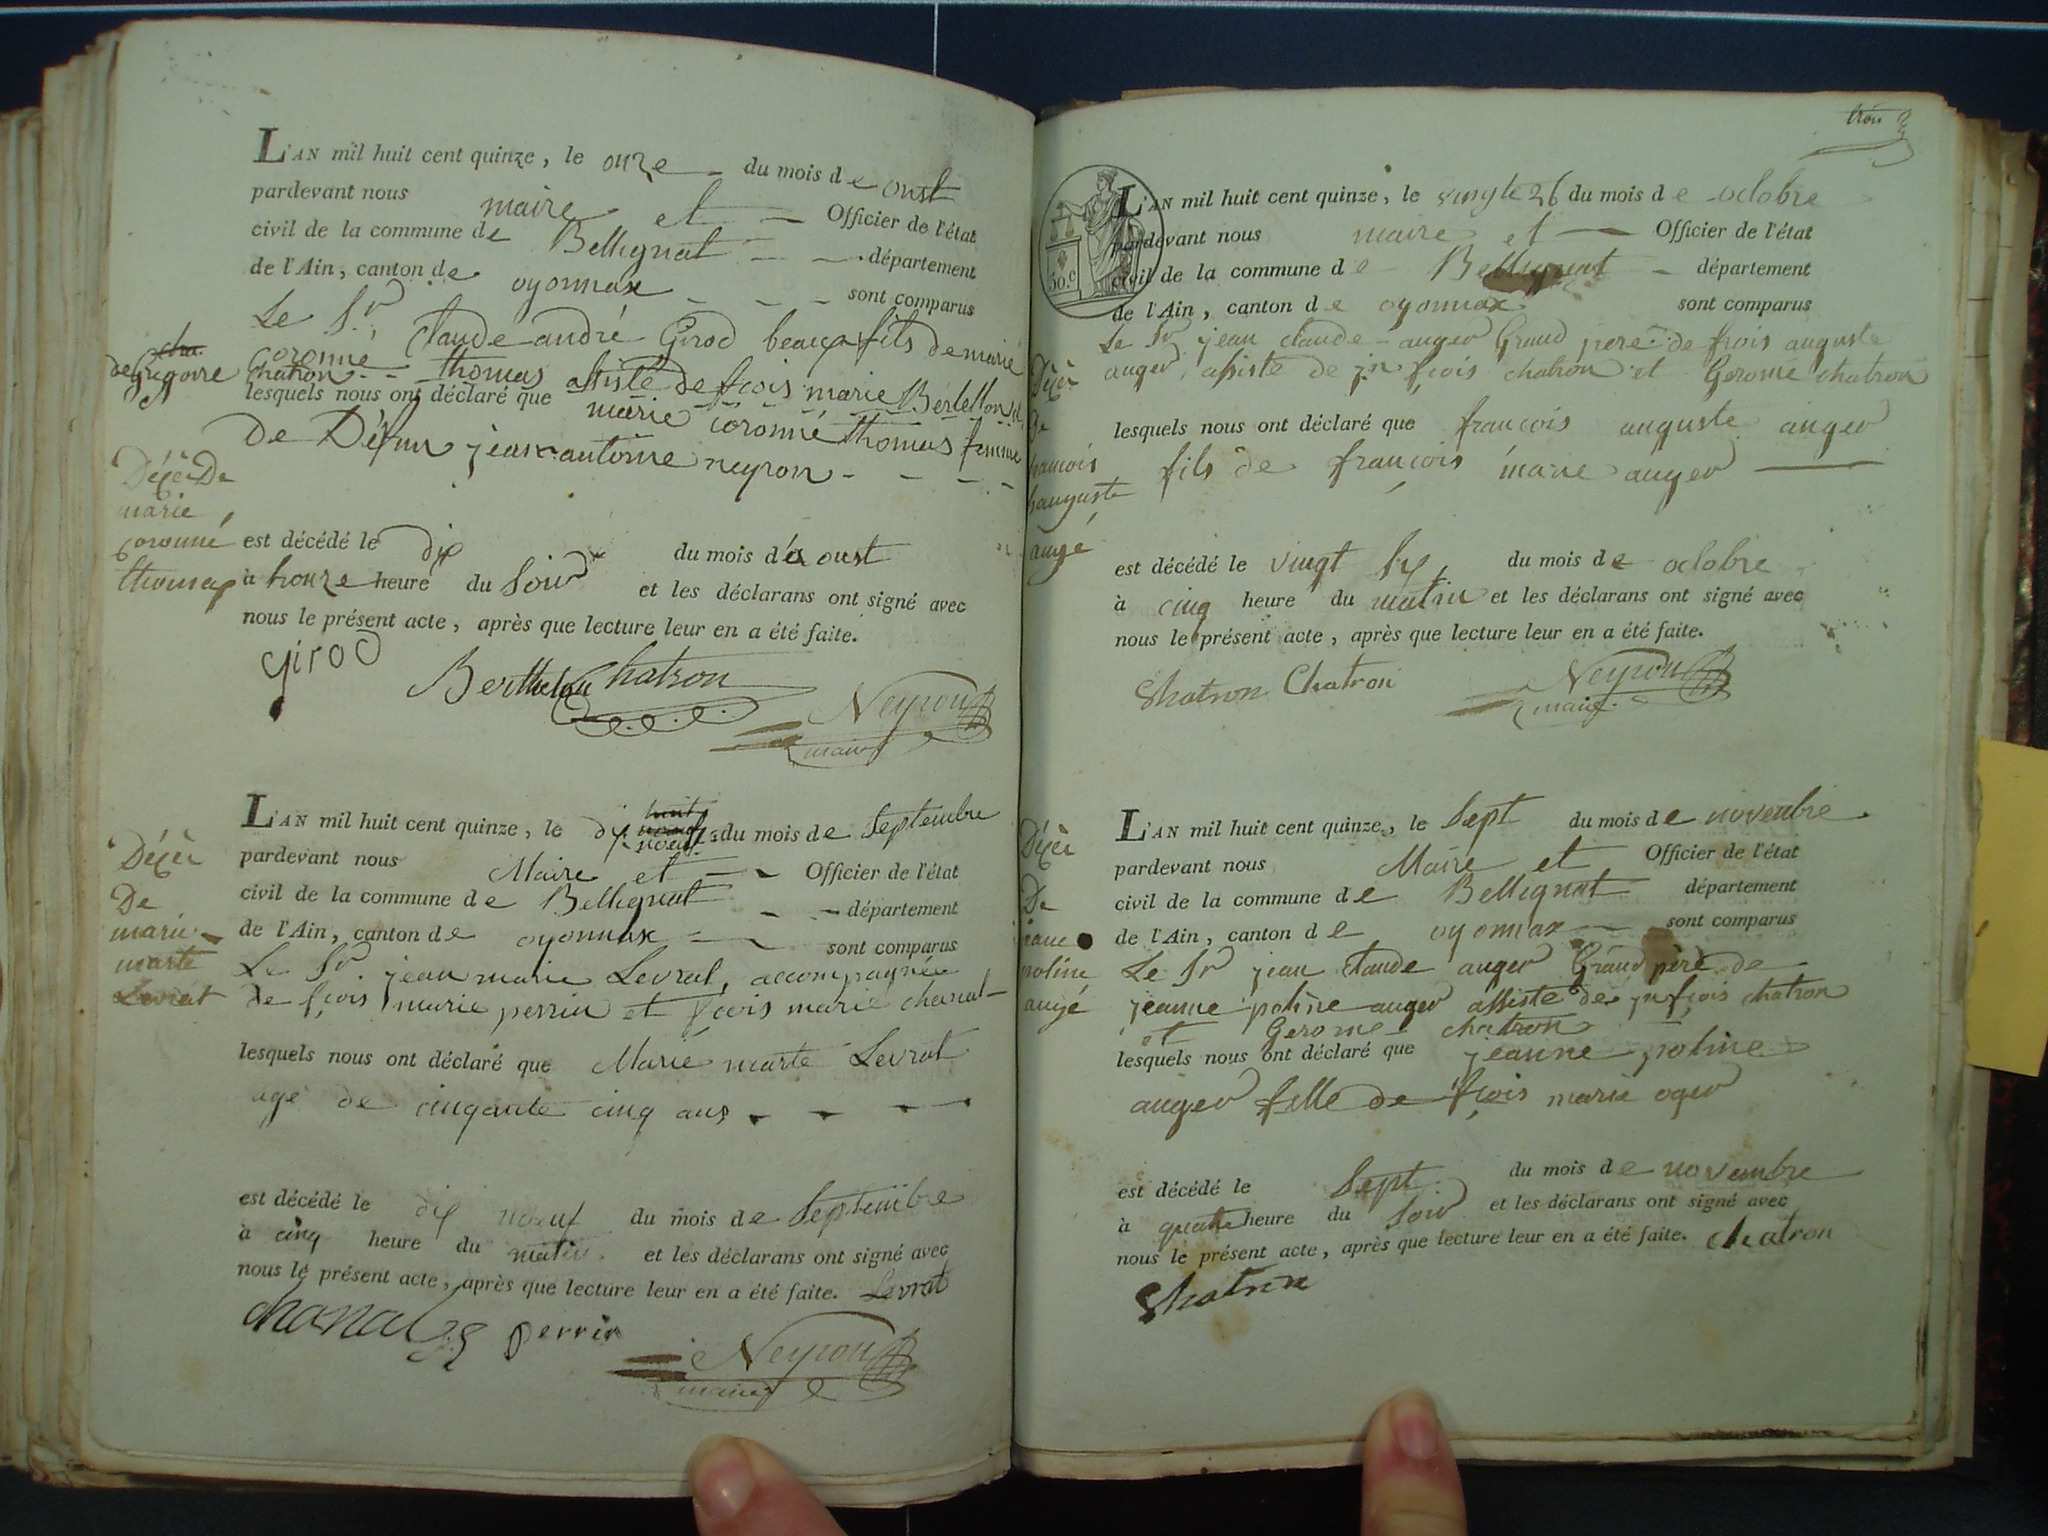 L'AN mil huit cent quinze, le onze du mois de oust
pardevant nous maire et Officier de l'état
civil de la commune de Bellignat département
de l'Ain, canton de oyonnax sont comparus
Le Sr. Claude andré Girod beaux fils de marie
de Grégoire
coronné thomas assisté de fcois marie Bertellon et
chatron
lesquels nous ont déclaré que marie coronné thomas femme
de Défun jean antoine neyron
Décè De
marie
coronné
thomas
est décédé le dix du mois de aoust
à honze heure du Soir et les déclarans ont signé avec
nous le présent acte, après que lecture leur en a été faite.
girod
Berthelon Chatron
Neyron
maire
L'AN mil huit cent quinze, le dix neuf du mois de Septembre
pardevant nous Maire et Officier de l'état
civil de la commune de Bellignat département
de l'Ain, canton de oyonnax sont comparus
Décè
De
marie
marte
Levrat
Le Sr. jean marie Levrat, accompagnée
de fcois marie perrin et fcois marie chanal
lesquels nous ont déclaré que Marie marte Levrat
age de cinqante cinq ans
est décédé le dix noeuf du mois de Septembre
à cinq heure du matin et les déclarans ont signé avec
nous le présent acte, après que lecture leur en a été faite. Levrat
chanal perrin
Neyron
maire
trois
50.c
L'AN mil huit cent quinze, le vingte 26 du mois de octobre
pardevant nous maire et Officier de l'état
civil de la commune de Bellignat département
de l'Ain, canton de oyonnax sont comparus
Le Sr jean claude auger Grand pere de frois auguste
auger, assiste de jn fcois chatron et Gerome chatron
Décè
De
francois
hauguste
augé
lesquels nous ont déclaré que françois auguste auger
fils de françois marie auger
est décédé le vingt six du mois de octobre
à cinq heure du matin et les déclarans ont signé avec
nous le présent acte, après que lecture leur en a été faite.
Chatron Chatron
Neyron
maire
L'AN mil huit cent quinze, le Sept du mois de novembre
pardevant nous Maire et Officier de l'état
civil de la commune de Bellignat département
de l'Ain, canton de oyonnax sont comparus
Décè
De
jane
poline
augé
Le Sr jean Claude auger Grand père de
jeanne poline auger assiste de jn fcois chatron
et Gerome chatron
lesquels nous ont déclaré que jeanne poline
auger fille de fcois marie oger
est décédé le Sept du mois de novembre
à quatre heure du Soir et les déclarans ont signé avec
nous le présent acte, après que lecture leur en a été faite. chatron
Chatron